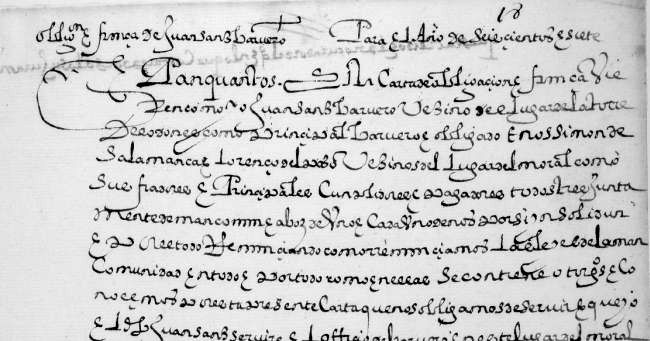 18
oblig.on e fiança de Juan sanz barvero Para el Año de seiscientos e siete
Panquantos. esta Carta de obligacion e fiança Vie
Ren como yo Juan sanz barvero Vezino de el lugar de la torre
De lodones como Principal barvero e obligado E nos simon de
Salamanca e Lorenço del Vezinos del Lugar del moral como
Sus fiadores e Principales Cunplidores e pagadores todos tres Junta
Mente de mancomun e a boz de Uno e Cada Uno de nos por si yn solidun
E por el todo Renunciando como rrenunciamos La ley de la man
Comunidad en todo e por todo como en ellas se contiene otorgamos e Co
nocemos por esta presente Carta que nos obligamos de servir e que yo
El dicho Juan sanz servire el officio de barvero en este lugar del moral